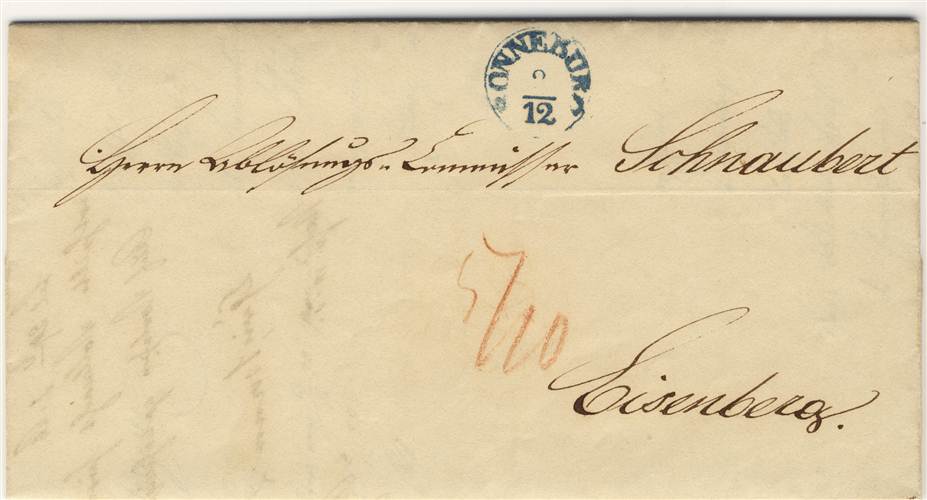 ONNEBUR
12
Herrn Ablösungs-Commissar Schnaubert
5/10
Eisenberg.